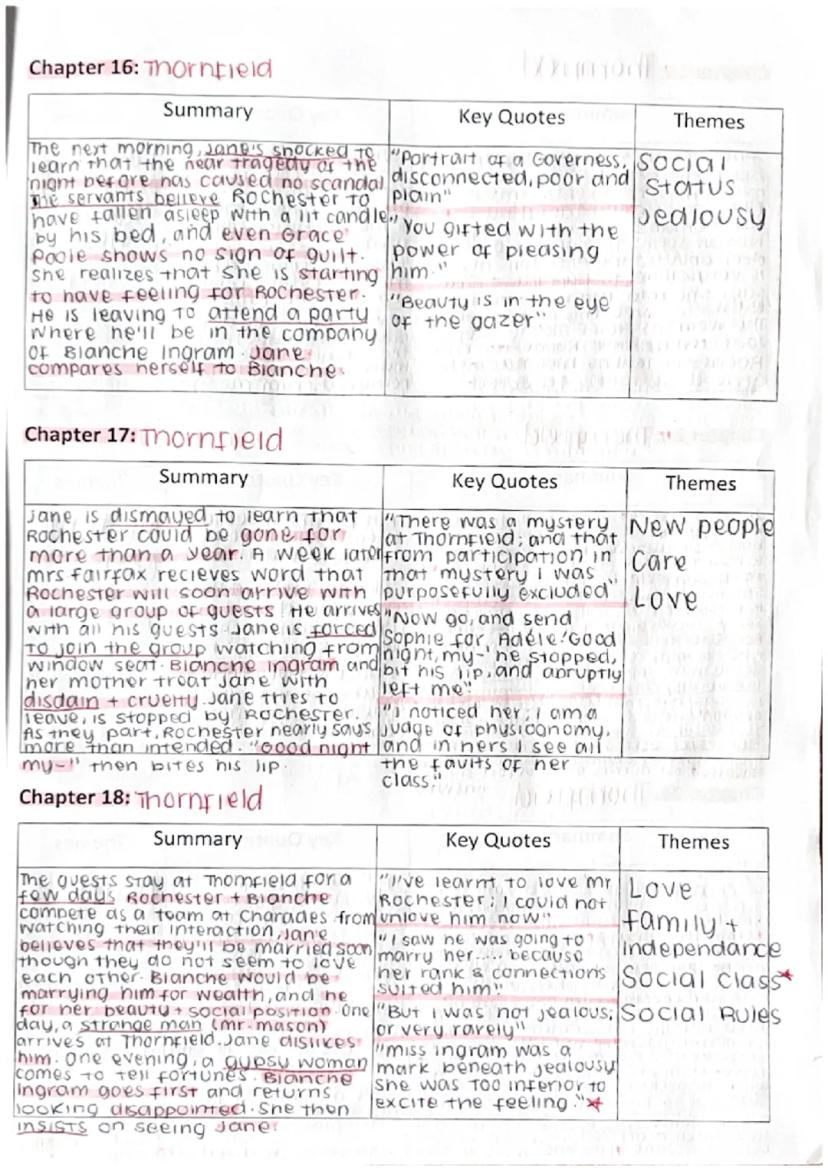 Chapter 16: Thornfield
Summary
Key Quotes
Themes
The next morning, Jane's shocked to
learn that the near tragedy of the
night before has caused no scandal
The servants believe Rochester to
have fallen asleep with a lit candle
by his bed, and even Grace
Poole shows no sign of guilt.
She realizes that she is starting
to have feeling for Rochester.
He is leaving to attend a party
where he'll be in the company
of Blanche Ingram. Jane
compares herself to Blanche.
"Portrait of a Governess,
disconnected, poor and
plain"
"You gifted with the
power of pleasing
him."
"Beauty is in the eye
of the gazer"
Social
Status
Jealousy
Chapter 17: Thornfield
Summary
Key Quotes
Themes
Jane is dismayed to learn that
Rochester could be gone for
more than a year. A week later
mrs Fairfax recieves word that
Rochester will soon arrive with
a large group of guests. He arrives
with all his guests Jane is forced
to join the group watching from
window seat. Blanche Ingram and
her mother treat Jane with
disdain + cruelty. Jane tries to
leave, is stopped by Rochester.
As they part, Rochester nearly says
more than intended. "Good night
my-" then bites his lip.
"There was a mystery
at Thornfield; and that
from participation in
that mystery I was
purposefully excluded"
"Now go, and send
Sophie for Adèle. 'Good
night, my-' he stopped,
bit his lip, and abruptly
left me"
"I noticed her; I am a
judge of physiognomy,
and in hers I see all
the faults of her
class."
New people
Care
Love
Chapter 18: Thornfield
Summary
Key Quotes
Themes
The guests stay at Thornfield for a
few days Rochester + Blanche
compete as a team at Charades from
watching their interaction, Jane
believes that they'll be married soon
though they do not seem to love
each other. Blanche would be
marrying him for wealth, and he
for her beauty + social position. One
day, a strange man (mr. mason)
arrives at Thornfield. Jane dislikes
him. One evening, a gypsy woman
comes to tell fortunes. Blanche
Ingram goes first and returns
looking disappointed. She then
insists on seeing Jane.
"I've learnt to love mr
Rochester; I could not
unlove him now"
"I saw he was going to
marry her.... because
her rank & connections
suited him"
"But I was not jealous,
or very rarely"
"miss Ingram was a
mark beneath jealousy
she was too inferior to
excite the feeling."*
Love
family +
independance
Social Class*
Social Rules